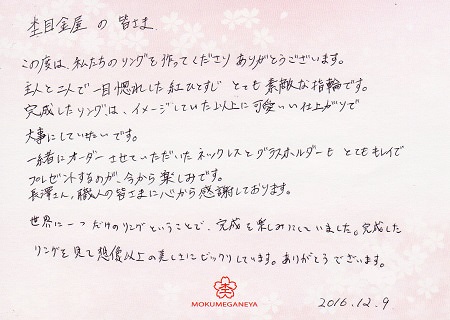 杢目金屋 の 皆さま
この度は、私たちのリングを作ってくださり ありがとうございます。
主人と二人で一目惚れした紅ひとすじ とても素敵な指輪です。
完成したリングは、イメージしていた以上に可愛いい仕上がりで
大事にしていきたいです。
一緒にオーダーさせていただいたネックレスとグラスホルダーも とてもキレイで
プレゼントするのが、今から楽しみです。
長澤さん、職人の皆さまに心から感謝しております。
世界に一つだけのリングということで、完成を楽しみにしていました。完成した
リングを見て想像以上の美しさにビックリしています。ありがとうございます。
MOKUMEGANEYA
2016.12.9